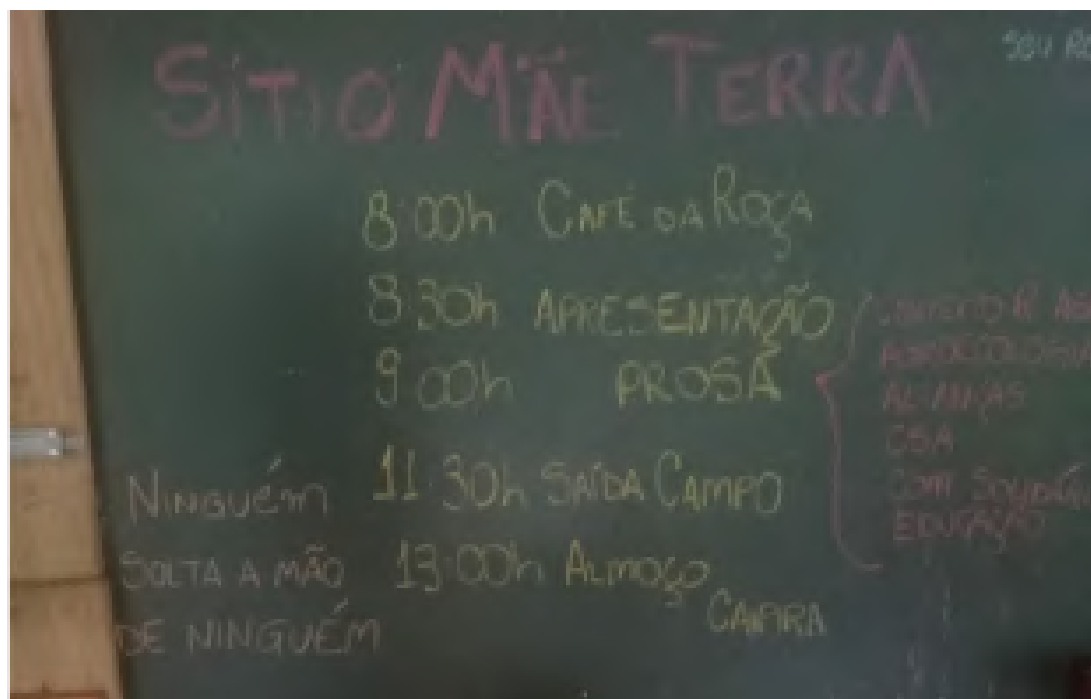 SÍTIO MÃE TERRA
8:00h CAFÉ DA ROÇA
8:30h APRESENTAÇÃO
9:00h PROSA
11:30h SAÍDA CAMPO
13:00h ALMOÇO
CAIPIRA
NINGUÉM
SOLTA A MÃO
DE NINGUÉM
ALIANÇAS
CSA
EDUCAÇÃO